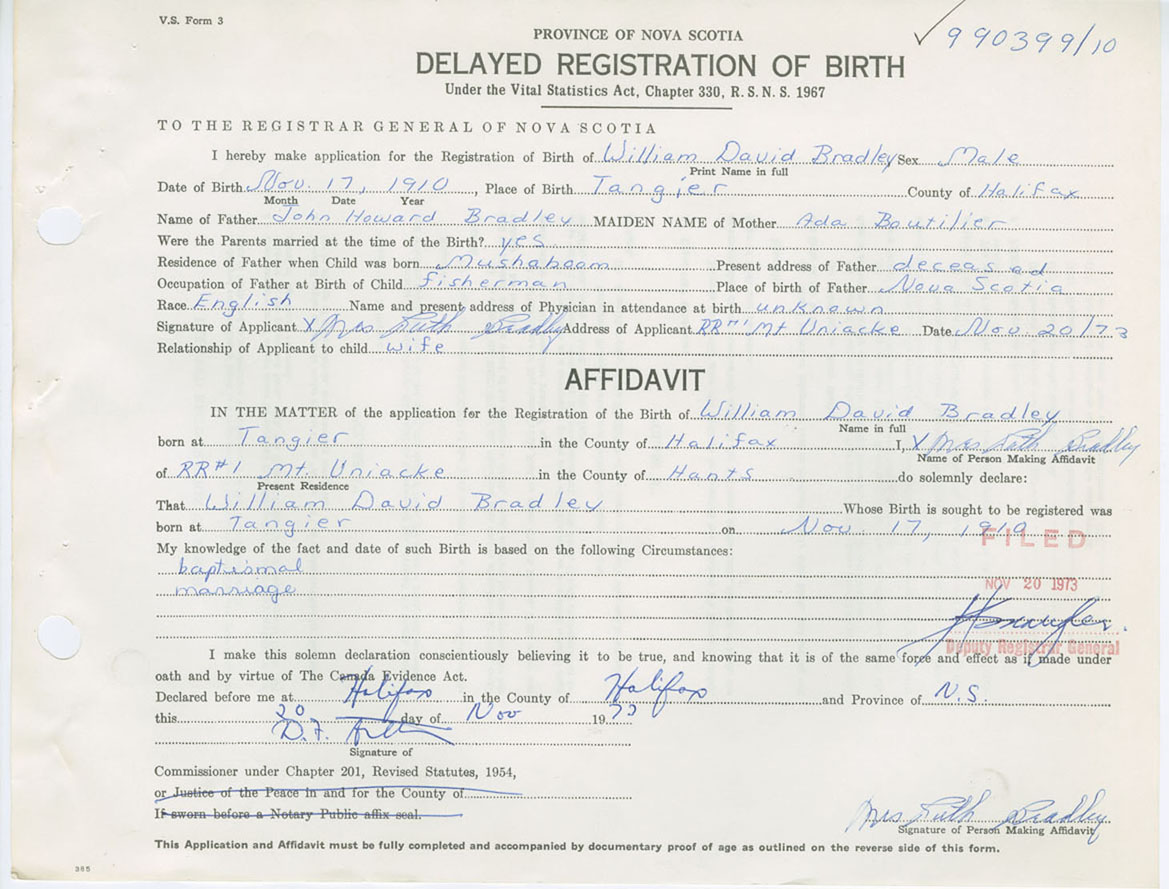 V.S. Form 3
990399/10
PROVINCE OF NOVA SCOTIA
DELAYED REGISTRATION OF BIRTH
Under the Vital Statistics Act, Chapter 330, R.S.N.S. 1967
TO THE REGISTRAR GENERAL OF NOVA SCOTIA
I hereby make application for the Registration of Birth of William David Bradley Sex Male
Print Name in full
Date of Birth Nov. 17, 1910, Place of Birth Tangier County of Halifax
Month Date Year
Name of Father John Howard Bradley MAIDEN NAME of Mother Ada Boutilier
Were the Parents married at the time of the Birth? yes
Residence of Father when Child was born Mushaboom Present address of Father deceased
Occupation of Father at Birth of Child fisherman Place of birth of Father Nova Scotia
Race English Name and present address of Physician in attendance at birth unknown
Signature of Applicant X Mrs Ruth Bradley Address of Applicant RR#1 Mt Uniacke Date Nov. 20/73
Relationship of Applicant to child wife
AFFIDAVIT
IN THE MATTER of the application for the Registration of the Birth of William David Bradley
Name in full
born at Tangier in the County of Halifax I, X Mrs Ruth Bradley
Name of Person Making Affidavit
of RR#1 Mt. Uniacke in the County of Hants do solemnly declare:
Present Residence
That William David Bradley Whose Birth is sought to be registered was
born at Tangier on Nov. 17, 1910
FILED
My knowledge of the fact and date of such Birth is based on the following Circumstances:
baptismal
marriage
NOV 20 1973
Deputy Registrar General
I make this solemn declaration conscientiously believing it to be true, and knowing that it is of the same force and effect as if made under
oath and by virtue of The Canada Evidence Act.
Declared before me at Halifax in the County of Halifax and Province of N.S.
this 20 day of Nov 1973
D.F.
Signature of
Commissioner under Chapter 201, Revised Statutes, 1954,
or Justice of the Peace in and for the County of
If sworn before a Notary Public affix seal.
Mrs Ruth Bradley
Signature of Person Making Affidavit
This Application and Affidavit must be fully completed and accompanied by documentary proof of age as outlined on the reverse side of this form.
385